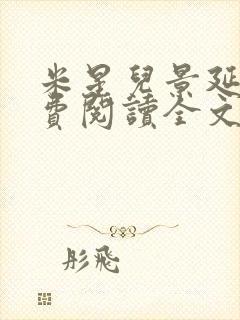 米星兒景延
費閱讀全文
彤飛